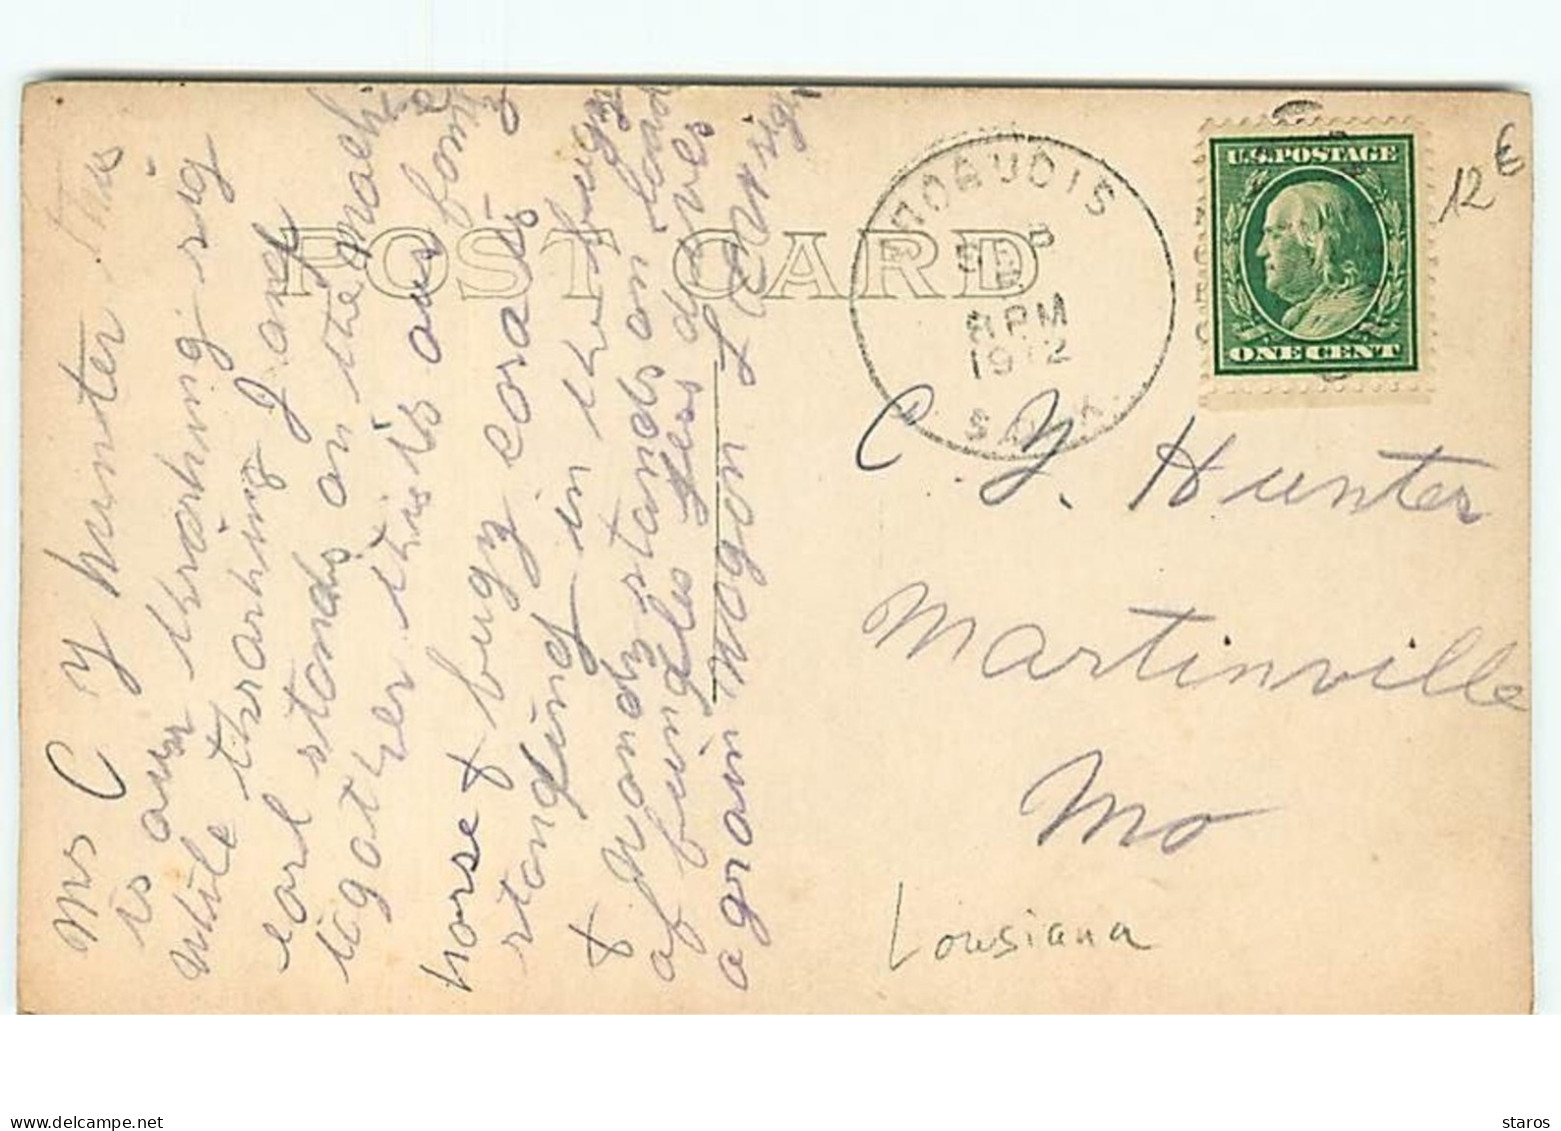 Mrs C Y hunter this
is our thrarhing rig
while thrarhing J and
earl stands on the machi
togather this is our
horse & bugy corats
standing in the bugy
& grondy stands on load
of bundles Jess drives
a grain wagon
POST CARD
IROQUOIS
SEP
8 PM
1912
S. DAK.
U.S. POSTAGE
ONE CENT
12 €
C. Y. Hunter
Martinville
Mo
Lousiana
www.delcampe.net
staros